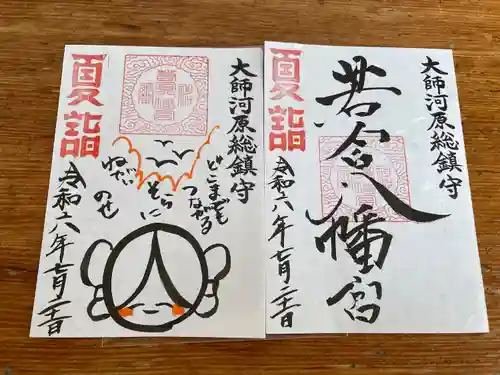 大師河原総鎮守
どこまでも
つながる
そらに
ねがい
のせ
夏詣
令和六年七月
大師河原総鎮守
若宮八幡宮
夏詣
令和六年七月